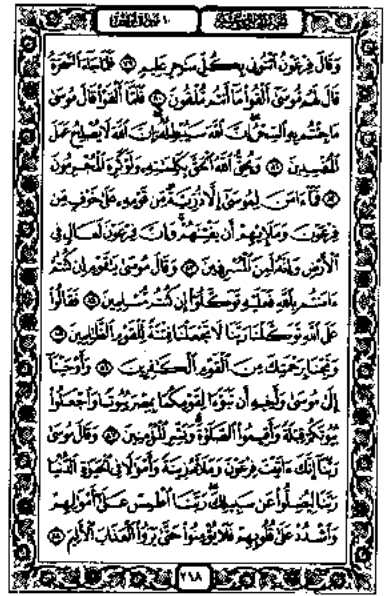 الجزء الحادي عشر ١٠ سورة يونس
وَقَالَ فِرْعَوْنُ ٱئْتُونِي بِكُلِّ سَٰحِرٍ عَلِيمٍ ٧٩ فَلَمَّا جَآءَ ٱلسَّحَرَةُ
قَالَ لَهُم مُّوسَىٰٓ أَلْقُوا۟ مَآ أَنتُم مُّلْقُونَ ٨٠ فَلَمَّآ أَلْقَوْا۟ قَالَ مُوسَىٰ
مَا جِئْتُم بِهِ ٱلسِّحْرُ إِنَّ ٱللَّهَ سَيُبْطِلُهُۥٓ إِنَّ ٱللَّهَ لَا يُصْلِحُ عَمَلَ
ٱلْمُفْسِدِينَ ٨١ وَيُحِقُّ ٱللَّهُ ٱلْحَقَّ بِكَلِمَٰتِهِۦ وَلَوْ كَرِهَ ٱلْمُجْرِمُونَ
٨٢ فَمَآ ءَامَنَ لِمُوسَىٰٓ إِلَّا ذُرِّيَّةٌ مِّن قَوْمِهِۦ عَلَىٰ خَوْفٍ مِّن
فِرْعَوْنَ وَمَلَإِي۟هِمْ أَن يَفْتِنَهُمْ وَإِنَّ فِرْعَوْنَ لَعَالٍ فِي
ٱلْأَرْضِ وَإِنَّهُۥ لَمِنَ ٱلْمُسْرِفِينَ ٨٣ وَقَالَ مُوسَىٰ يَٰقَوْمِ إِن كُنتُمْ
ءَامَنتُم بِٱللَّهِ فَعَلَيْهِ تَوَكَّلُوٓا۟ إِن كُنتُم مُّسْلِمِينَ ٨٤ فَقَالُوا۟
عَلَى ٱللَّهِ تَوَكَّلْنَا رَبَّنَا لَا تَجْعَلْنَا فِتْنَةً لِّلْقَوْمِ ٱلظَّٰلِمِينَ ٨٥
وَنَجِّنَا بِرَحْمَتِكَ مِنَ ٱلْقَوْمِ ٱلْكَٰفِرِينَ ٨٦ وَأَوْحَيْنَآ
إِلَىٰ مُوسَىٰ وَأَخِيهِ أَن تَبَوَّءَا لِقَوْمِكُمَا بِمِصْرَ بُيُوتًا وَٱجْعَلُوا۟
بُيُوتَكُمْ قِبْلَةً وَأَقِيمُوا۟ ٱلصَّلَوٰةَ وَبَشِّرِ ٱلْمُؤْمِنِينَ ٨٧ وَقَالَ مُوسَىٰ
رَبَّنَآ إِنَّكَ ءَاتَيْتَ فِرْعَوْنَ وَمَلَأَهُۥ زِينَةً وَأَمْوَٰلًا فِي ٱلْحَيَوٰةِ ٱلدُّنْيَا
رَبَّنَا لِيُضِلُّوا۟ عَن سَبِيلِكَ رَبَّنَا ٱطْمِسْ عَلَىٰٓ أَمْوَٰلِهِمْ
وَٱشْدُدْ عَلَىٰ قُلُوبِهِمْ فَلَا يُؤْمِنُوا۟ حَتَّىٰ يَرَوُا۟ ٱلْعَذَابَ ٱلْأَلِيمَ ٨٨
٢١٨